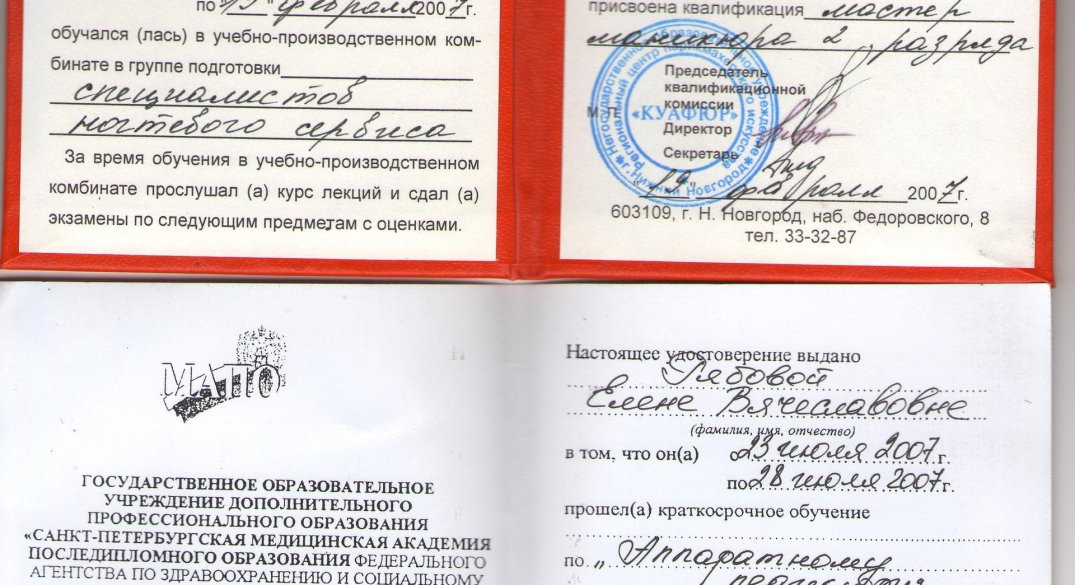 по 19 февраля 2007г.
обучался (лась) в учебно-производственном ком-
бинате в группе подготовки
специалистов
ногтевого сервиса
За время обучения в учебно-производственном
комбинате прослушал (а) курс лекций и сдал (а)
экзамены по следующим предметам с оценками.
присвоена квалификация мастер
маникюра 2 разряда
Председатель
квалификационной
комиссии
М.П.
«КУАФЮР»
Директор
Секретарь
Негосударственное образовательное учреждение
региональный центр парикмахерского искусства
г. Нижний Новгород
"19" февраля 2007г.
603109, г. Н. Новгород, наб. Федоровского, 8
тел. 33-32-87
МАПО
ГОСУДАРСТВЕННОЕ ОБРАЗОВАТЕЛЬНОЕ
УЧРЕЖДЕНИЕ ДОПОЛНИТЕЛЬНОГО
ПРОФЕССИОНАЛЬНОГО ОБРАЗОВАНИЯ
«САНКТ-ПЕТЕРБУРГСКАЯ МЕДИЦИНСКАЯ АКАДЕМИЯ
ПОСЛЕДИПЛОМНОГО ОБРАЗОВАНИЯ ФЕДЕРАЛЬНОГО
АГЕНТСТВА ПО ЗДРАВООХРАНЕНИЮ И СОЦИАЛЬНОМУ
Настоящее удостоверение выдано
Рябовой
Елене Вячеславовне
(фамилия, имя, отчество)
в том, что он(а) 23 июля 2007г.
по 28 июля 2007г.
прошел(а) краткосрочное обучение
по „Аппаратному